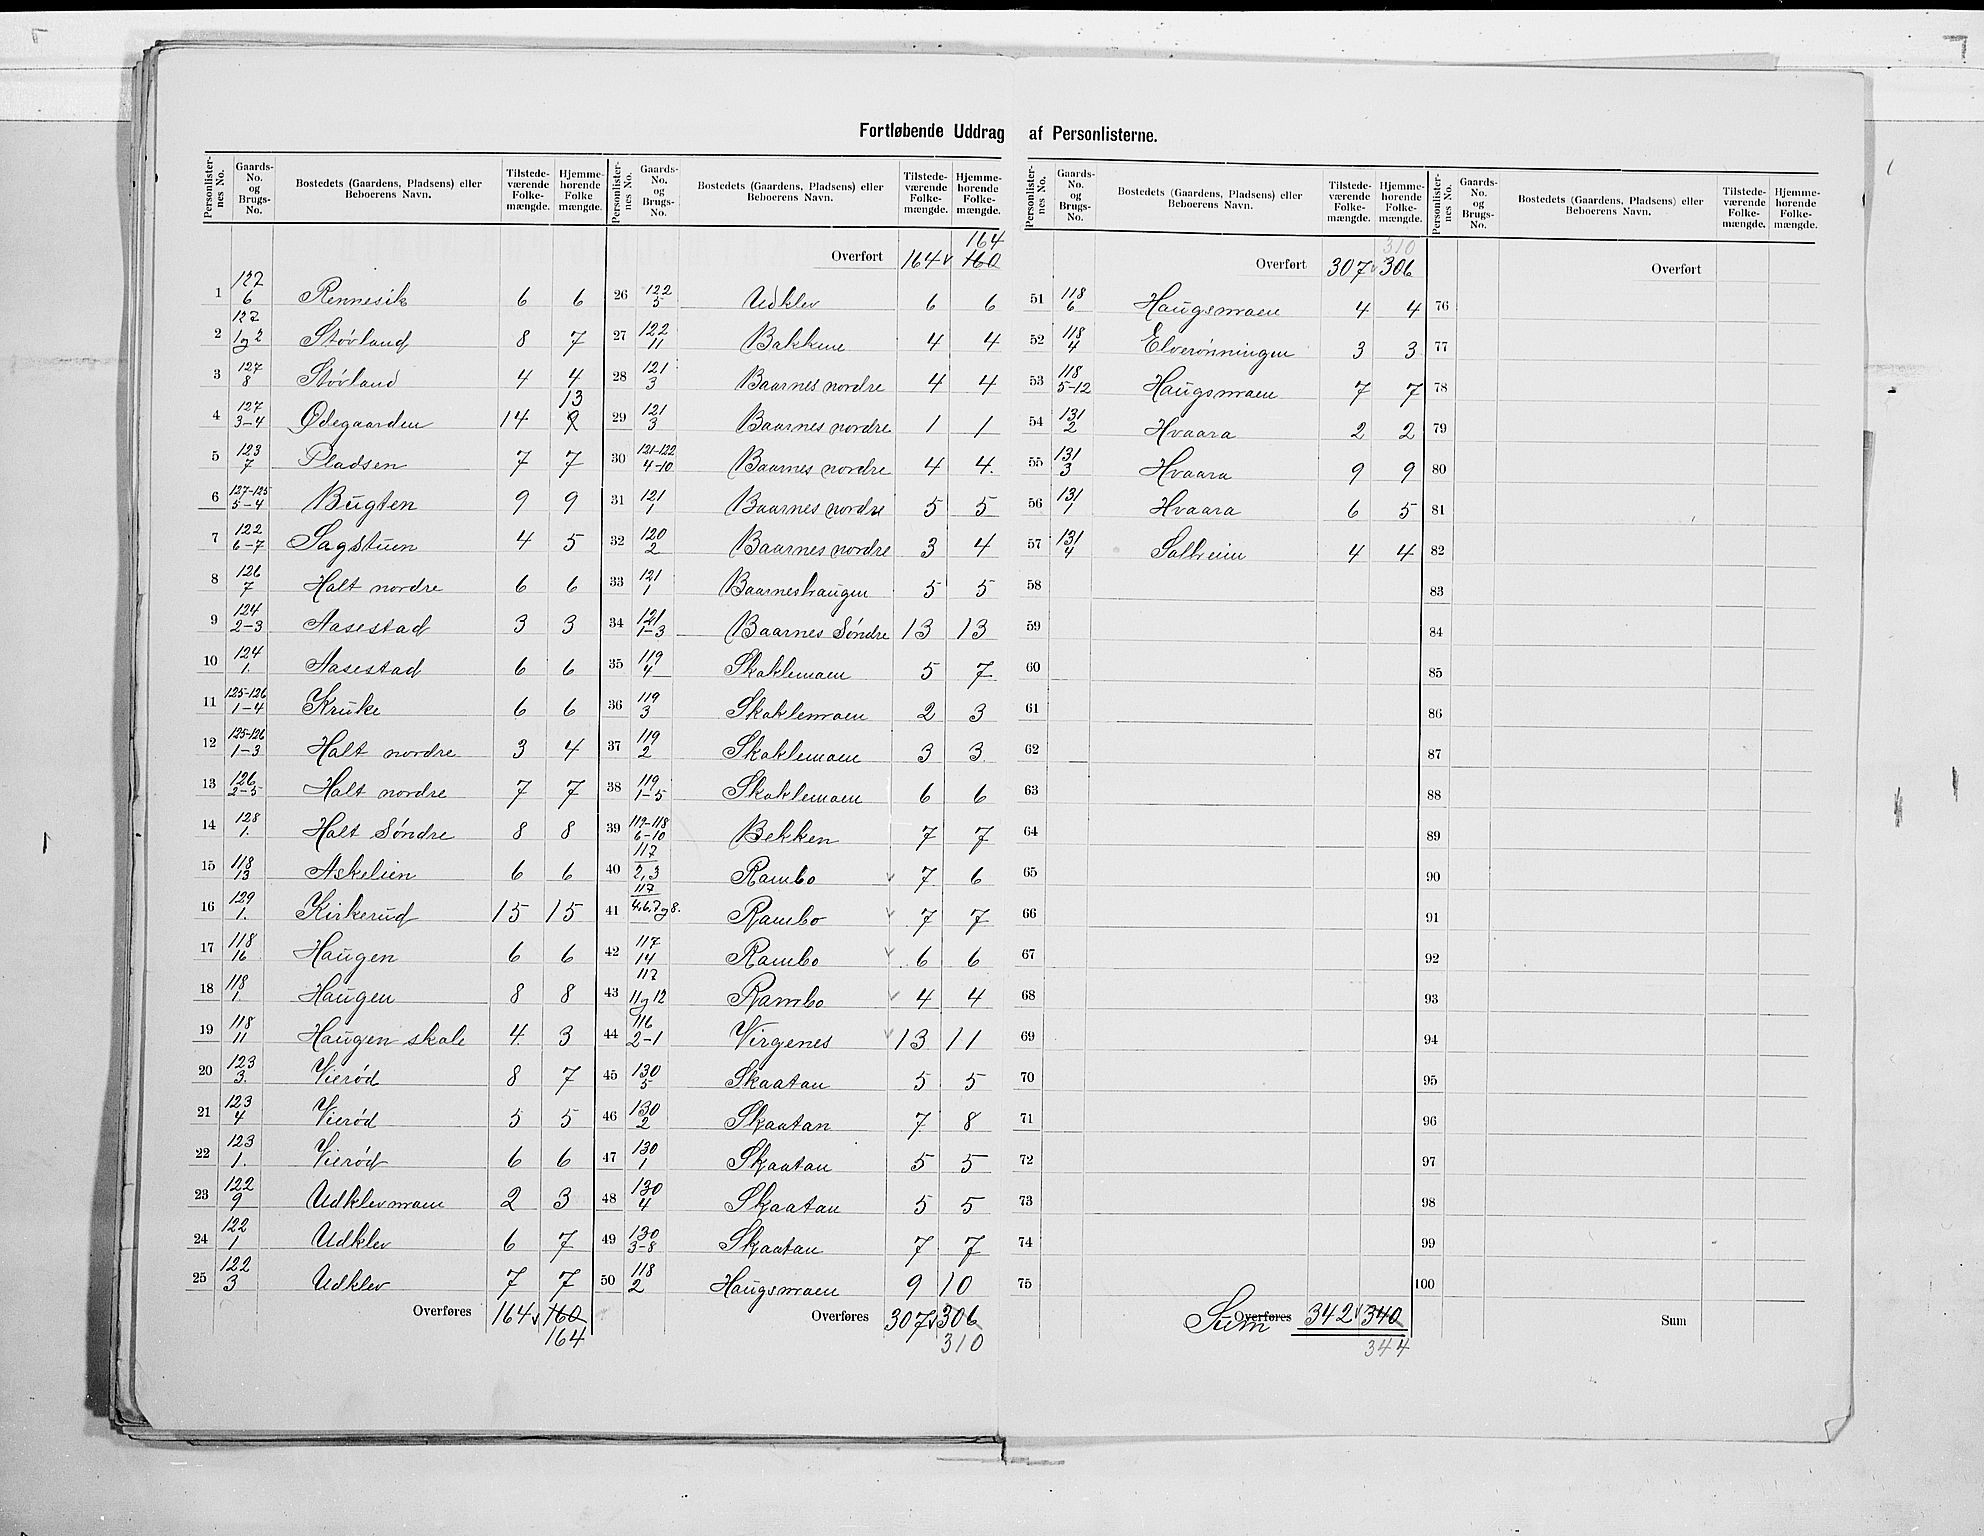 Fortløbende Uddrag af Personlisterne.
Personlisternes No. Gaards-No. og Brugs-No. Bostedets (Gaardens, Pladsens) eller Beboerens Navn. Tilstedeværende Folkemængde. Hjemmehørende Folkemængde.
1 127/6 Rennesik 6 6
2 127/1 og 2 Støvland 8 7
3 127/8 Støvland 4 4
4 127/3-4 Ødegaarden 14 9 13
5 123/7 Pladsen 7 7
6 127-125/5-4 Bugten 9 9
7 122/6-7 Sagstuen 4 5
8 126/7 Halt nordre 6 6
9 124/2-3 Aasestad 3 3
10 124/1. Aasestad 6 6
11 125-126/1-4 Kruke 6 6
12 125-126/1-3 Halt nordre 3 4
13 126/2-5 Halt nordre 7 7
14 128/1. Halt Søndre 8 8
15 118/13 Askelien 6 6
16 129/1. Kirkerud 15 15
17 118/16 Haugen 6 6
18 118/1. Haugen 8 8
19 118/11 Haugen skole 4 3
20 123/3. Vierød 8 7
21 123/4 Vierød 5 5
22 123/1. Vierød 6 6
23 122/9 Udklevmoen 2 3
24 122/1 Udklev 6 7
25 122/3 Udklev 7 7
Overføres 164 160
164
Personlisternes No. Gaards-No. og Brugs-No. Bostedets (Gaardens, Pladsens) eller Beboerens Navn. Tilstedeværende Folkemængde. Hjemmehørende Folkemængde.
164
Overført 164 160
26 122/5 Udklev 6 6
27 122/11 Bakkene 4 4
28 121/3 Baarnes nordre 4 4
29 121/3 Baarnes nordre 1 1
30 121-122/4-10 Baarnes nordre 4 4.
31 121/1 Baarnes nordre 5 5
32 120/2 Baarnes nordre 3 4
33 121/1 Baarneshaugen 5 5
34 121/1-3 Baarnes Søndre 13 13
35 119/4 Skoklemoen 5 7
36 119/3 Skoklemoen 2 3
37 119/2 Skoklemoen 3 3
38 119/1-5 Skoklemoen 6 6
39 119-118/6-10 Bekken 7 7
40 117/2,3 Rambo 7 6
41 117/4,6,7 og 8. Rambo 7 7
42 117/14 Rambo 6 6
43 117/11 og 12 Rambo 4 4
44 116/2-1 Virgenes 13 11
45 130/5 Skaatan 5 5
46 130/2 Skaatan 7 8
47 130/1 Skaatan 5 5
48 130/4 Skaatan 5 5
49 130/3-8 Skaatan 7 7
50 118/2 Haugsmoen 9 10
Overføres 307 306
310
Personlisternes No. Gaards-No. og Brugs-No. Bostedets (Gaardens, Pladsens) eller Beboerens Navn. Tilstedeværende Folkemængde. Hjemmehørende Folkemængde.
310
Overført 307 306
51 118/6 Haugsmoen 4 4
52 118/4 Elverønningen 3 3
53 118/5-12 Haugsmoen 7 7
54 131/2 Hvaara 2 2
55 131/3 Hvaara 9 9
56 131/1 Hvaara 6 5
57 131/4 Solheim 4 4
58
59
60
61
62
63
64
65
66
67
68
69
70
71
72
73
74
75
Overføres Sum 342 340
344
Personlisternes No. Gaards-No. og Brugs-No. Bostedets (Gaardens, Pladsens) eller Beboerens Navn. Tilstedeværende Folkemængde. Hjemmehørende Folkemængde.
Overført
76
77
78
79
80
81
82
83
84
85
86
87
88
89
90
91
92
93
94
95
96
97
98
99
100
Sum